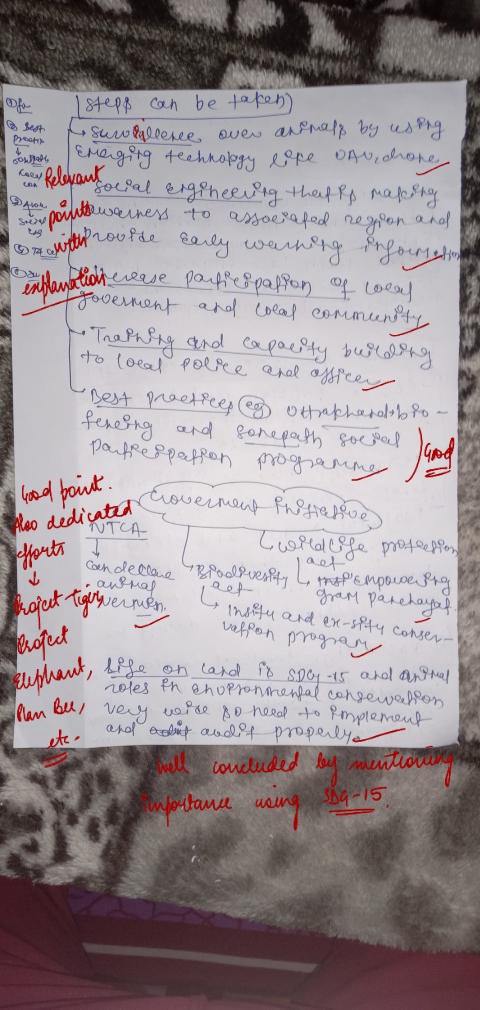 Steps can be taken
Surveillence over animals by using
Emerging technology like UAV, drone
Social engineering that is making
awarness to associated region and
provide Early warning information
Increase participation of local
goverment and local community
Training and capacity building
to local police and officer
Best practices eg Uttrakhand bio-
fencing and sonepath social
participation programme
Relevant
points
with
explanation
Good
Goverment initiative
NTCA
can declare
animal
vermin.
Biodiversity
act
insitu and ex-situ conser-
vation program
wildlife protection
act
Empowering
gram panchayat
Good point.
Also dedicated
efforts
Project tiger
Project
Elephant,
Plan Bee,
etc.
Life on land is SDG-15 and animal
roles in environmental conservation
very so need to implement
and audit properly.
well concluded by mentioning
importance using SDG-15.